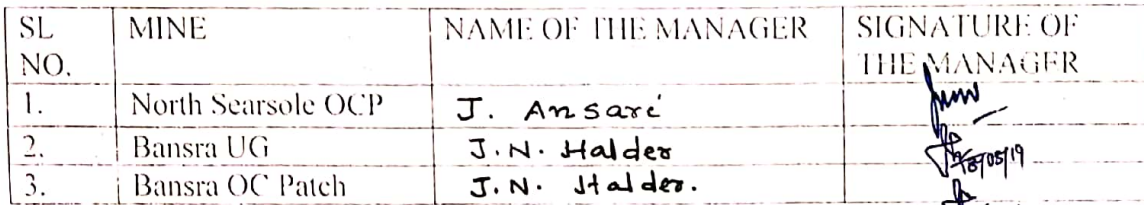 SL NO. MINE NAME OF THE MANAGER SIGNATURE OF THE MANAGER
1. North Searsole OCP J. Ansari
2. Bansra UG J.N. Halder 18/05/19
3. Bansra OC Patch J.N. Halder.